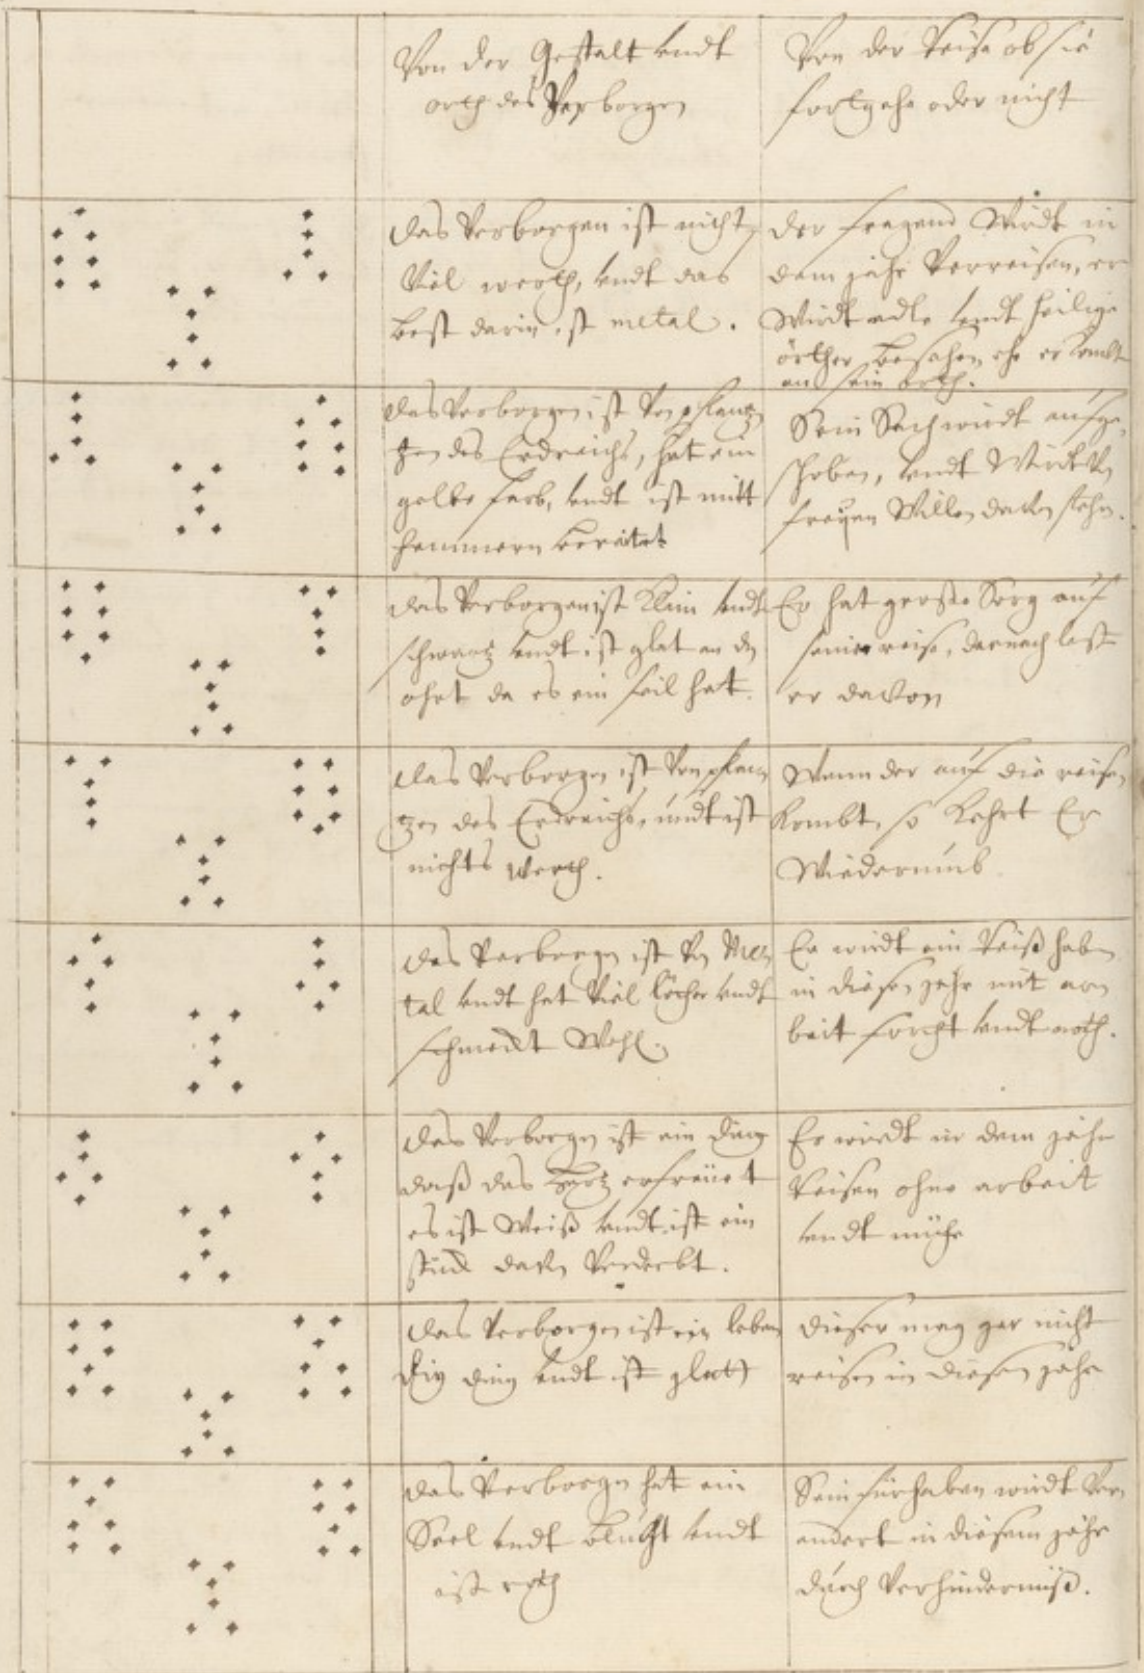 Von der Gestalt undt
orth des Verborgen
Von der Reise ob sie
fortgehe oder nicht
das Verborgen ist nicht
Viel werth, undt das
best darin ist metal.
der fragend Wirdt in
dem jahr Verreisen, er
Wirdt undt heilige
örther besehen ehe er kombt
an sein orth.
das Verborgen ist Von pflan
tzen des Erdreichs, hat ein
gelbe farb, undt ist mitt
hammern bereitet
Sein Sach wirdt aufge
schoben, undt Wirdt Von
freyen Willen davon stehn.
das Verborgen ist Klein undt
schwartz undt ist glat an dem
ohrt da es ein hat.
Er hat grosse Sorg auf
seiner reise, darnach last
er davon
das Verborgen ist Von pflan
tzen des Erdreichs, undt ist
nichts werth.
Wann der auf die reisen
kombt, so kehrt Er
Wiederumb
das Verborgen ist Von Me
tal undt hat Viel löcher undt
schmeckt Wohl.
Er wirdt ein Reiß haben
in diesen jahr mit ar
beit forcht undt noth.
das Verborgen ist ein ding
daß das hertz erfreüet
es ist Weiß undt ist ein
stück davon Verderbt.
Er wirdt in dem jahr
Reisen ohne arbeit
undt mühe
das Verborgen ist ein leben
dig ding undt ist glatt
dieser mag gar nicht
reisen in diesen jahr
das Verborgen hat ein
Seel undt bluht undt
ist roth
Sein fürhaben wirdt Ver
andert in diesem jahr
durch Verhindernüß.